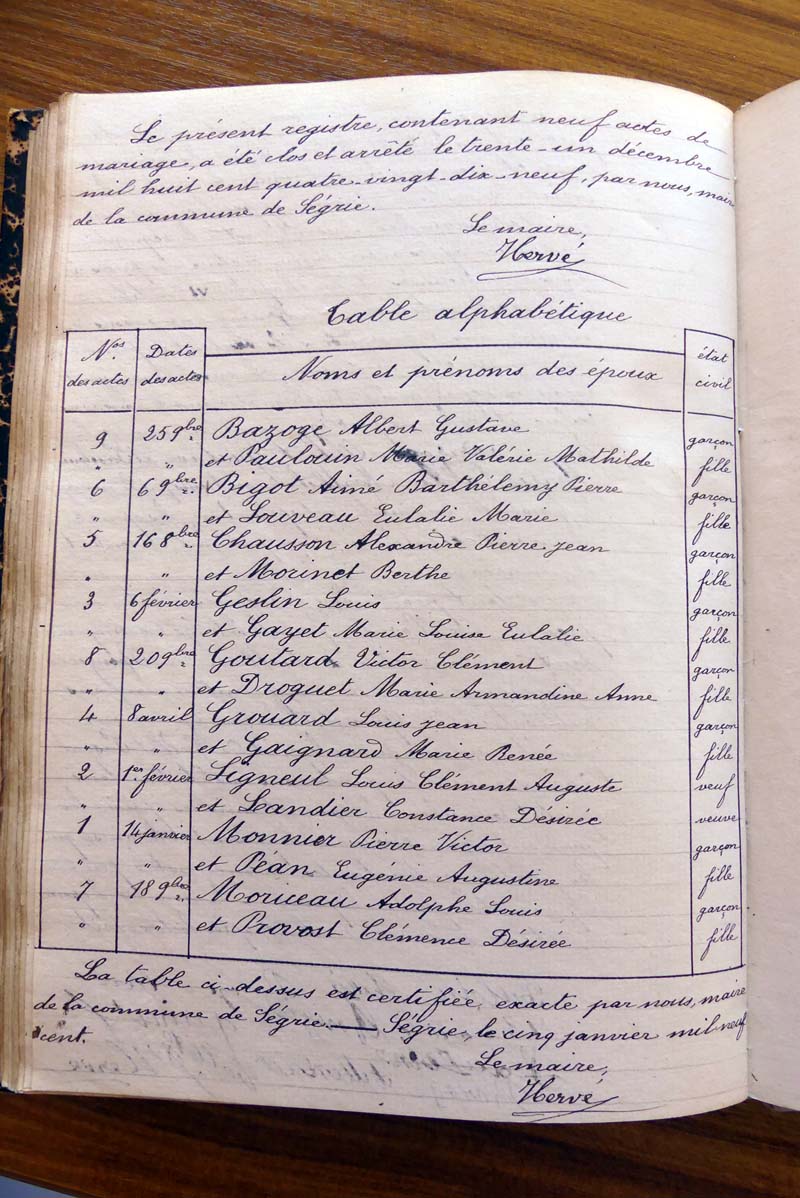 Le présent registre, contenant neuf actes de
mariage, a été clos et arrêté le trente-un décembre
mil huit cent quatre-vingt-dix-neuf, par nous, maire
de la commune de Ségrie.
Le maire,
Hervé
Table alphabétique
Nos des actes Dates des actes Noms et prénoms des époux état civil
9 25 9bre Bazoge Albert Gustave garçon
" " et Paulouin Marie Valérie Mathilde fille
6 6 9bre Bigot Aimé Barthélemy Pierre garçon
" " et Louveau Eulalie Marie fille
5 16 8bre Chausson Alexandre Pierre Jean garçon
" " et Morinet Berthe fille
3 6 février Geslin Louis garçon
" " et Gayet Marie Louise Eulalie fille
8 20 9bre Goutard Victor Clément garçon
" " et Droguet Marie Armandine Anne fille
4 8 avril Grouard Louis Jean garçon
" " et Gaignard Marie Renée fille
2 1er février Ligneul Louis Clément Auguste veuf
" " et Landier Constance Désirée veuve
1 14 janvier Monnier Pierre Victor garçon
" " et Péan Eugénie Augustine fille
7 18 9bre Moriceau Adolphe Louis garçon
" " et Provost Clémence Désirée fille
La table ci-dessus est certifiée exacte par nous, maire
de la commune de Ségrie. — Ségrie, le cinq janvier mil neuf
cent.
Le maire,
Hervé